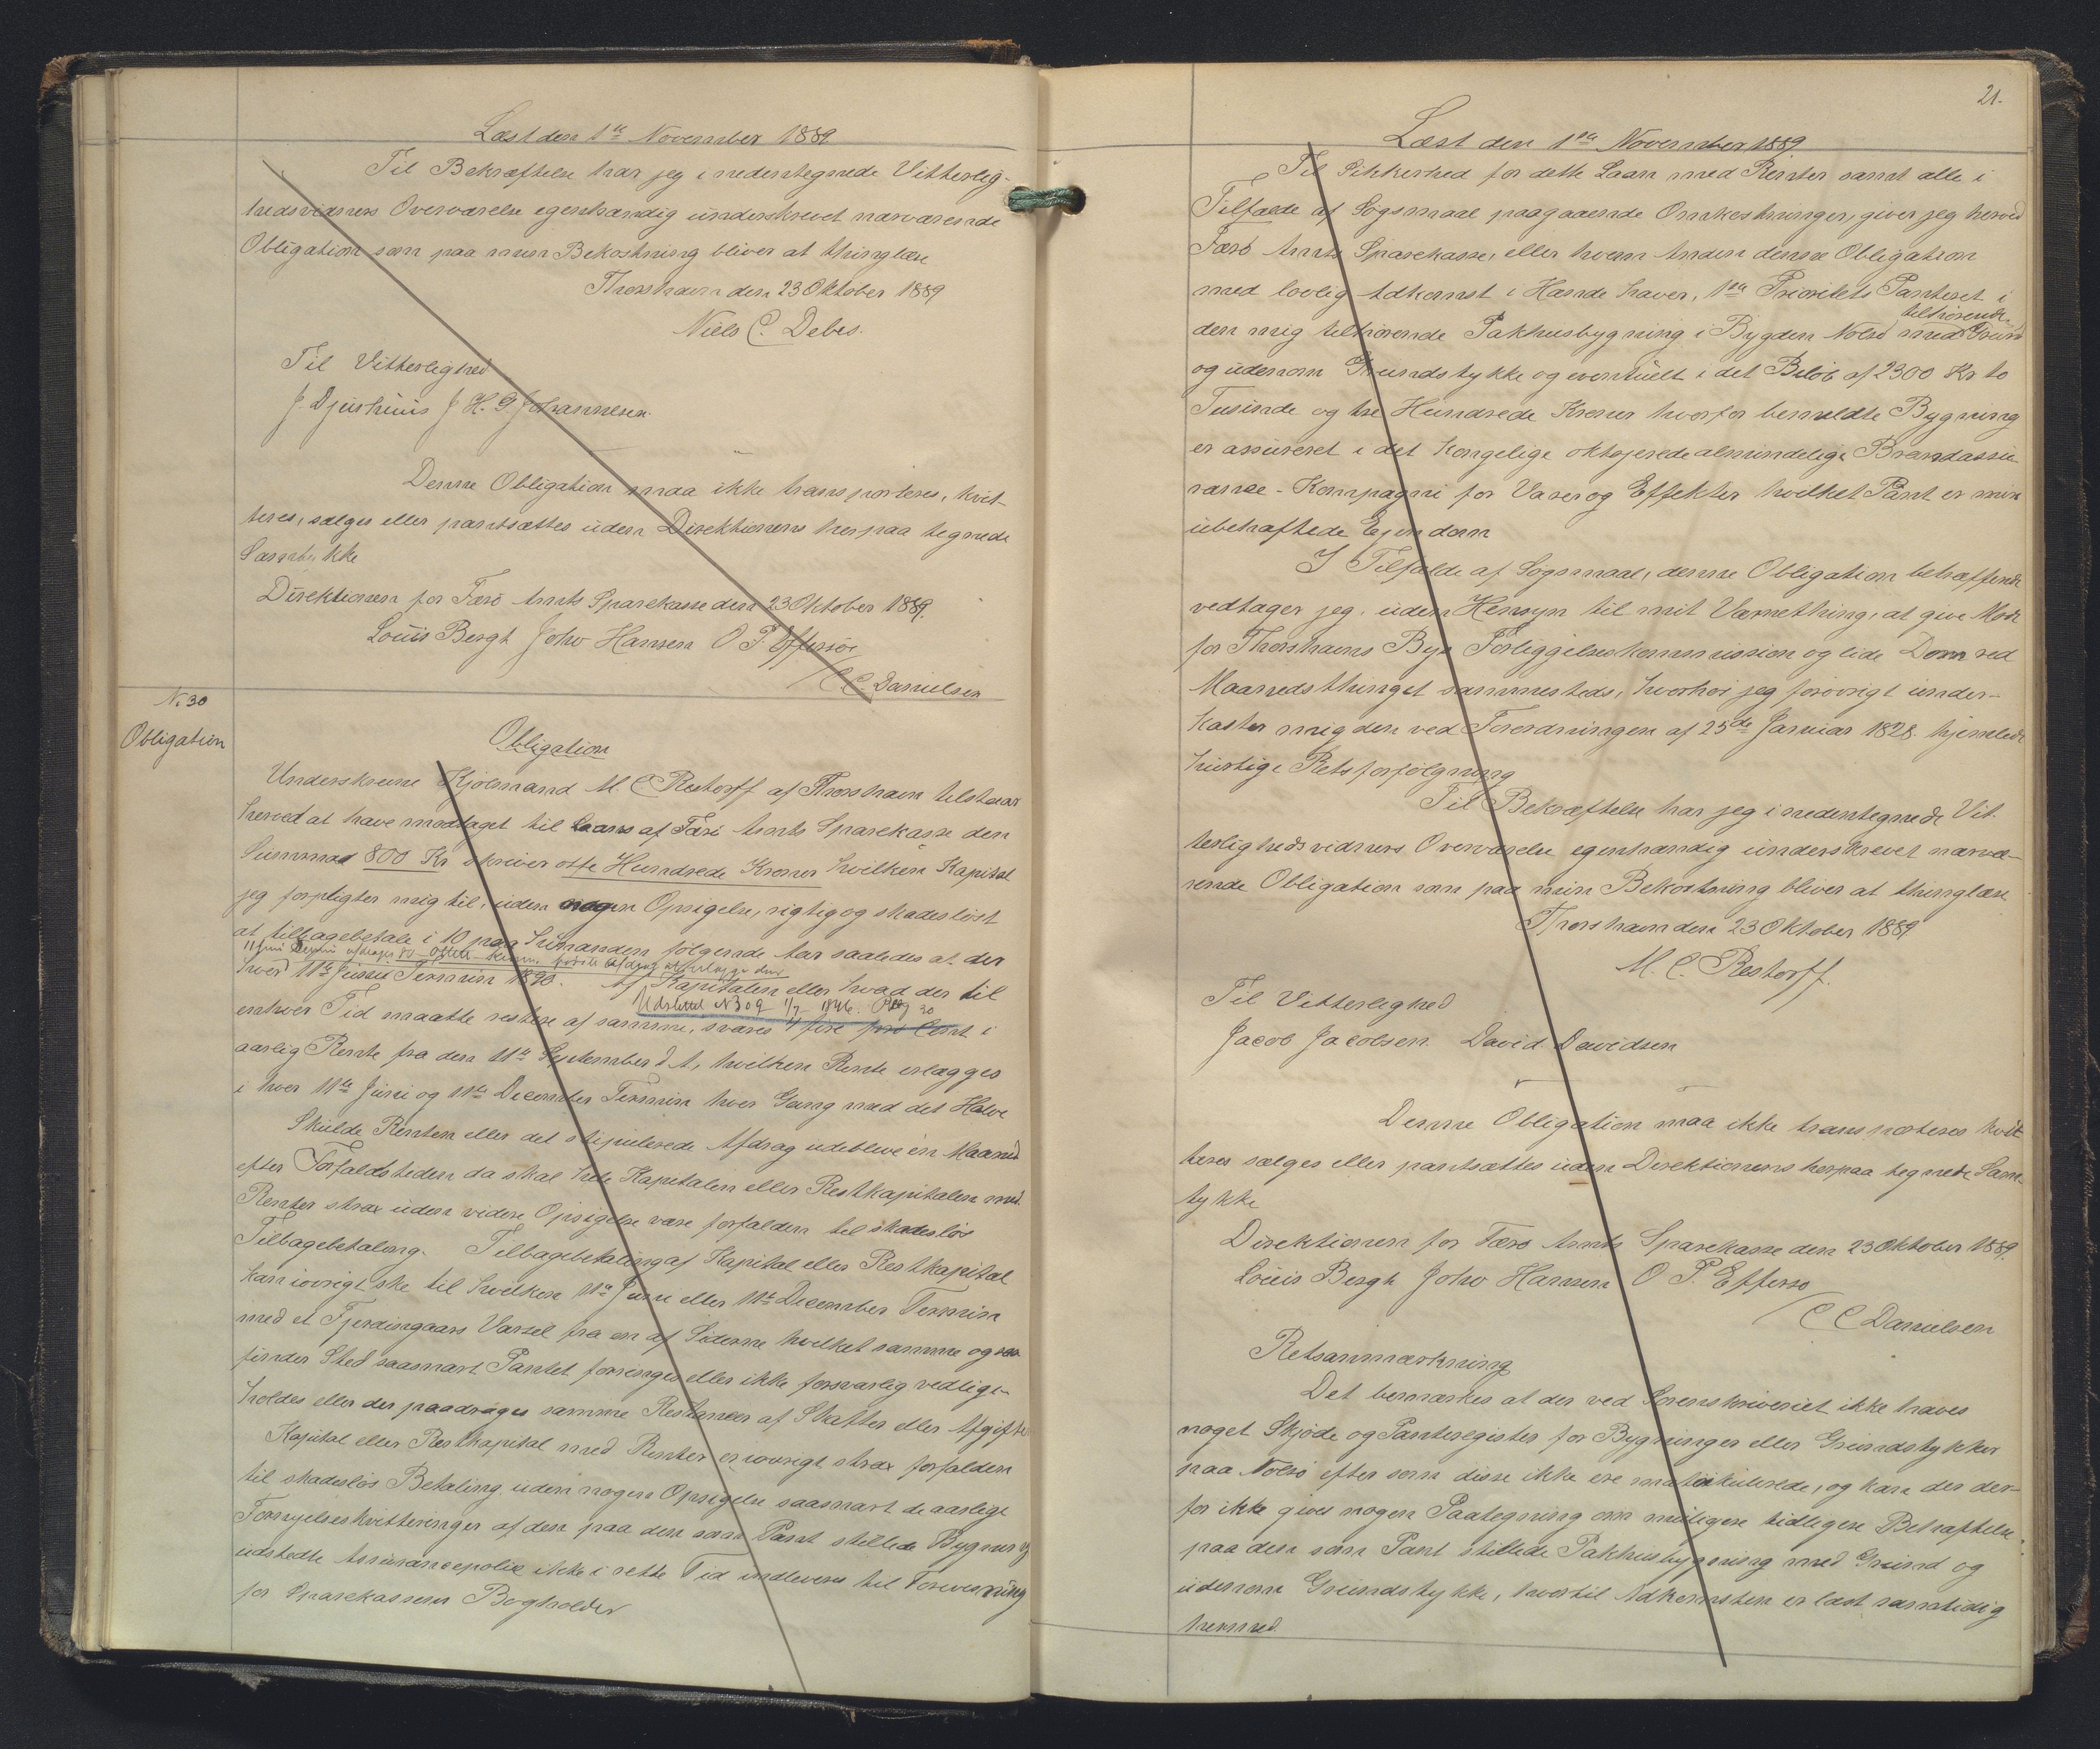 Læst den 1ste November 1889
Til Bekræftelse har jeg i nedentegnede Vitterlig-
hedsvidners Overværelse egenhændig underskrevet nærværende
Obligation som paa min Bekostning bliver at thinglæse
Thorshavn den 23 Oktober 1889
Niels C. Debes.
Til Vitterlighed
J. Djurhuus J. H. P. Johannesen.
Denne Obligation maa ikke transporteres, kvit-
teres, sælges eller pantsættes uden Direktionens herpaa tegnede
Samtykke
Direktionen for Færø Amts Sparekasse den 23 Oktober 1889.
Louis Bergh John Hansen O P. Effersøe
C C Danielsen
N. 30
Obligation
Obligation
Underskrevne Kjøbmand M. C Restorff af Thorshavn tilstaar
herved at have modtaget til Laans af Færø Amts Sparekasse den
Summa 800 Kr skriver otte Hundrede Kroner hvilken Kapital
jeg forpligter mig til, uden nogen Opsigelse, rigtig og skadesløst
at tilbagebetale i 10 paa hinanden følgende Aar saaledes at der
11 Juni Termin afdrages 80 otteti Kroner første Afdrag at erlægge den
hver 11te Junii Termin 1890. Af Kapitalen eller hvad der til
Udslettet N 309 1/7 1946. Bilag 30
enhver Tid maatte restere af samme, svares 4 fire pro Cent i
aarlig Rente fra den 11te September d. A, hvilken Rente erlægges
i hver 11te Juni og 11te December Termin hver Gang med det Halve
Skulde Renten eller det stipulerede Afdrag udeblive én Maaned
efter Forfaldstiden da skal hele Kapitalen eller Restkapitalen med
Renter strax uden videre Opsigelse være forfalden til skadesløs
Tilbagebetaling. Tilbagebetaling af Kapital eller Restkapital
kan iøvrigt ske til hvilken 11te Juni eller 11te December Termin
med et Fjerdingaars Varsel fra en af Siderne hvilket samme og
finder Sted saasnart Pantet forringes eller ikke forsvarlig vedlige-
holdes eller der paadrages samme Restancer af Skatter eller Afgifter
Kapital eller Restkapital med Renter er iøvrigt strax forfalden
til skadesløs Betaling uden nogen Opsigelse saasnart de aarlige
Fornyelseskvitteringer af den paa den som Pant stillede Bygning
udstedte Assurancepolice ikke i rette Tid indleveres til Forevisning
for Sparekassens Bogholder
21.
Læst den 1ste November 1889
Til Sikkerhed for dette Laan med Renter samt alle i
Tilfælde af Søgsmaal paagaaende Omkostninger, giver jeg herved
Færø Amts Sparekasse, eller hvem Anden denne Obligation
med lovlig Adkomst i Hænde haver, 1ste Prioritets Panteret i
tilhørende
den mig tilhørende Pakhusbygning i Bygden Nolsø med Grund
og udenom Grundstykke og eventuelt i det Beløb af 2300 Kr to
Tusinde og tre Hundrede Kroner hvorfor bemeldte Bygning
er assureret i det kongelige oktrojerede almindelige Brandassu
rance-Kompagni for Varer og Effekter hvilket Pant er min
ubehæftede Ejendom
I Tilfælde af Søgsmaal, denne Obligation betræffende
vedtager jeg, uden Hensyn til mit Værnething, at give Møde
for Thorshavns Byes Forligelseskommission og lide Dom ved
Maanedsthinget sammesteds, hvorhos jeg forøvrigt under-
kaster mig den ved Forordningen af 25de Januar 1828 hjemlede
hurtige Retsforfølgning
Til Bekræftelse har jeg i nedentegnede Vit-
terlighedsvidners Overværelse egenhændig underskrevet nærvæ-
rende Obligation som paa min Bekostning bliver at thinglæse
Thorshavn den 23 Oktober 1889
M. C. Restorff.
Til Vitterlighed
Jacob Jacobsen. David Davidsen
Denne Obligation maa ikke transporteres kvit
teres sælges eller pantsættes uden Direktionens herpaa tegnede Sam
tykke
Direktionen for Færø Amts Sparekasse den 23 Oktober 1889.
Louis Bergh John Hansen O P. Effersø
C C Danielsen
Retsanmærkning
Det bemærkes at der ved Sorenskriveriet ikke haves
noget Skjøde og Panteregister for Bygninger eller Grundstykker
paa Nolsø efter som disse ikke ere matrikulerede, og kan der der-
for ikke gives nogen Paategning om muligen tidligere Behæftelse
paa den som Pant stillede Pakhusbygning med Grund og
udenom Grundstykke, hvortil Adkomsten er læst samtidig
hermed.